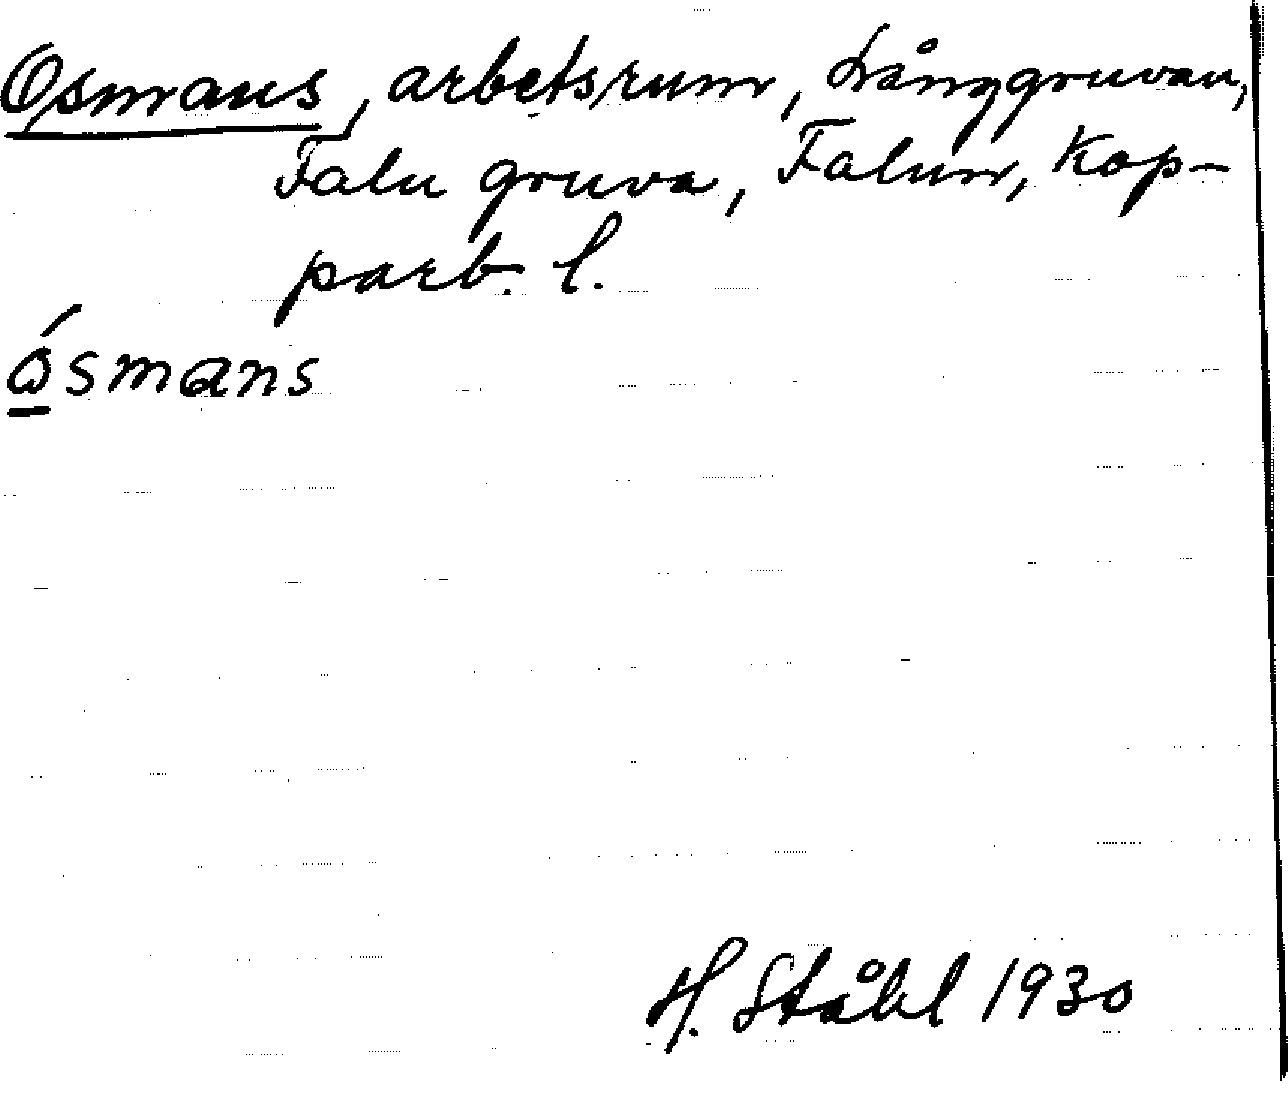 Osmans, arbetsrum, Långgruvan,
Falu gruva, Falun, Kop-
parb. l.
ósmans
H. Ståhl 1930